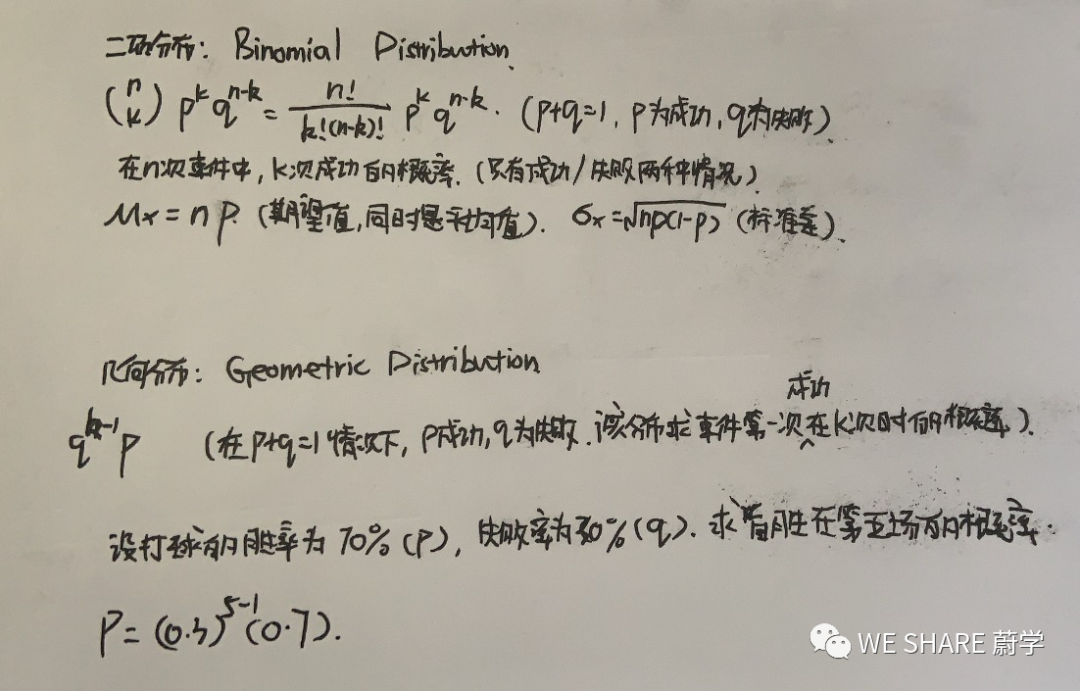 二项分布: Binomial Distribution.
(n k) p^k q^{n-k} = n!/(k!(n-k)!) p^k q^{n-k}. (p+q=1, p为成功, q为失败).
在n次事件中, k次成功的概率. (只有成功/失败两种情况).
Mx = np. (期望值, 同时是平均值). σx = √np(1-p) (标准差).
几何分布: Geometric Distribution
q^{k-1} p (在p+q=1情况下, p成功, q为失败. 该分布求事件第一次成功在k次时的概率).
设打球的胜率为70% (p), 失败率为30% (q). 求首胜在第五场的概率.
P = (0.3)^{5-1} (0.7).
WE SHARE 蔚学